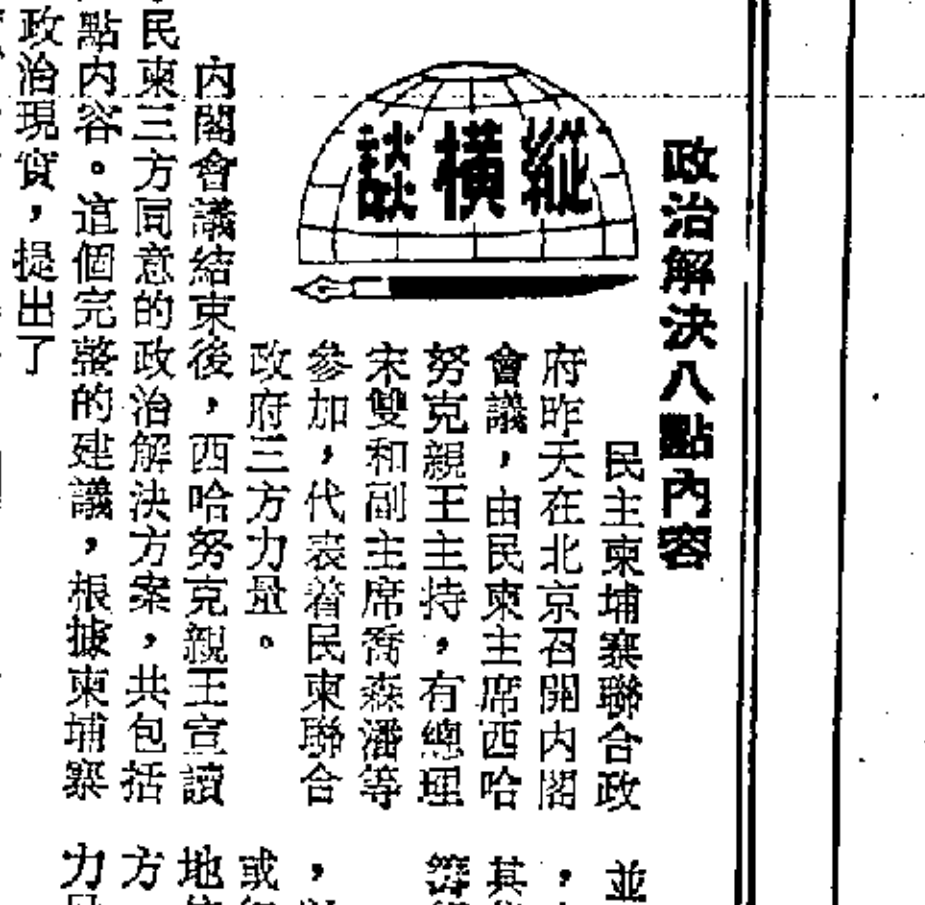 政治解決八點內容
縱橫談
民主柬埔寨聯合政
府昨天在北京召開內閣
會議，由民柬主席西哈
努克親王主持，有總理
宋雙和副主席喬森潘等
參加，代表着民柬聯合
政府三方力量。
內閣會議結束後，西哈努克親王宣讀
民柬三方同意的政治解決方案，共包括
點內容。這個完整的建議，根據柬埔寨
政治現實，提出了
並
，
其
籌
，
或
地
方
力